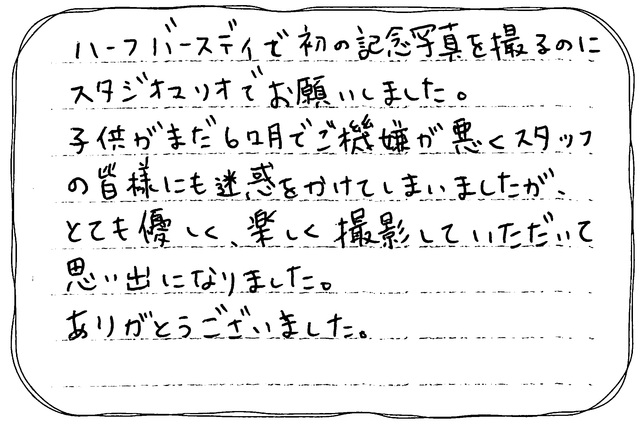 ハーフバースデイで初の記念写真を撮るのに
スタジオマリオでお願いしました。
子供がまだ6ヶ月でご機嫌が悪くスタッフ
の皆様にも迷惑をかけてしまいましたが、
とても優しく、楽しく撮影していただいて
思い出になりました。
ありがとうございました。